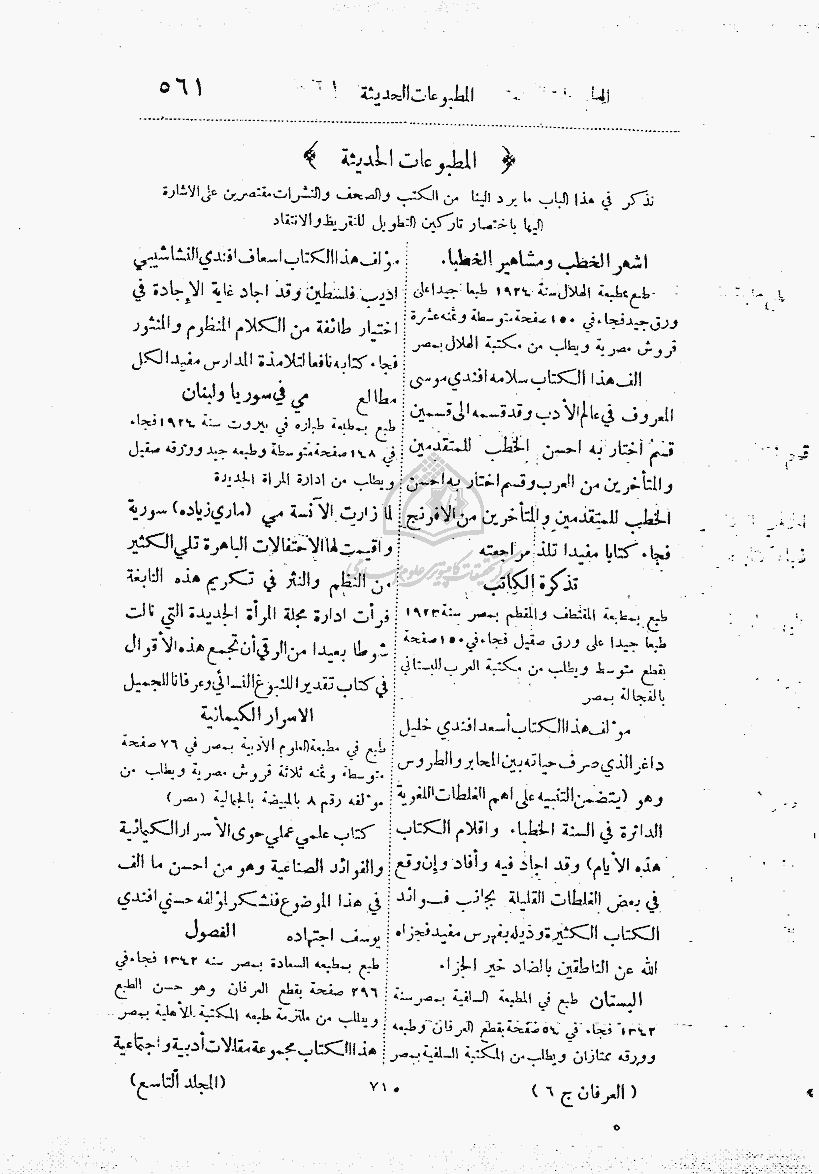 المطبوعات الحديثة ٥٦١
﴿ المطبوعات الحديثة ﴾
نذكر في هذا الباب ما يرد الينا من الكتب والصحف والنشرات مقتصرين على الاشارة
اليها باختصار تاركين التطويل للتقريظ والانتقاد
اشهر الخطب ومشاهير الخطباء
طبع بمطبعة الهلال سنة ١٩٢٤ طبعا جيدا على
ورق جيد فجاء في ١٥٠ صفحة متوسطة وثمنه عشرة
قروش مصرية ويطلب من مكتبة الهلال بمصر
الف هذا الكتاب سلامه افندي موسى
المعروف في عالم الأدب وقد قسمه الى قسمين
قسم اختار به احسن الخطب للمتقدمين
والمتأخرين من العرب وقسم اختار به احسن
الخطب للمتقدمين والمتأخرين من الافرنج
فجاء كتابا مفيدا تلذ مراجعته
تذكرة الكاتب
طبع بمطابعة المقتطف والمقطم بمصر سنة ١٩٢٣
طبعا جيدا على ورق صقيل فجاء في ١٥٠ صفحة
بقطع متوسط ويطلب من مكتبة العرب للبستاني
بالفجالة بمصر
مؤلف هذا الكتاب أسعد افندي خليل
داغر الذي صرف حياته بين المحابر والطروس
وهو (يتضمن التنبيه على اهم الغلطات اللغوية
الدائرة في السنة الخطباء واقلام الكتاب
هذه الأيام) وقد اجاد فيه وأفاد وإن وقع
في بعض الغلطات القليلة بجانب فوائد
الكتاب الكثيرة وذيله بفهرس مفيد فجزاه
الله عن الناطقين بالضاد خير الجزاء
البستان طبع في المطبعة السلفية بمصر سنة
١٣٤٢ فجاء في ٥٤ صفحة بقطع العرفان وطبعه
وورقه ممتازان ويطلب من المكتبة السلفية بمصر
مؤلف هذا الكتاب اسعاف افندي النشاشيبي
اديب فلسطين وقد اجاد غاية الإجادة في
اختيار طائفة من الكلام المنظوم والمنثور
فجاء كتابه نافعا لتلامذة المدارس مفيد الكل
مطالع مي في سوريا ولبنان
طبع بمطبعة طباره في بيروت سنة ١٩٢٤ فجاء
في ١٤٨ صفحة متوسطة وطبعه جيد وورقه صقيل
ويطلب من ادارة المرأة الجديدة
لما زارت الآنسة مي (ماري زياده) سورية
واقيمت لها الاحتفالات الباهرة تلي الكثير
من النظم والنثر في تكريم هذه النابغة
فرأت ادارة مجلة المرأة الجديدة التي نالت
شوطا بعيدا من الرقي أن تجمع هذه الأقوال
في كتاب تقديرا للنبوغ النسائي وعرفانا للجميل
الاسرار الكيمائية
طبع في مطبعة العلوم الأدبية بمصر في ٧٦ صفحة
متوسطة وثمنه ثلاثة قروش مصرية ويطلب من
مؤلفه رقم ٨ بالمبيضة بالجمالية (مصر)
كتاب علمي عملي حوى الأسرار الكيمائية
والفوائد الصناعية وهو من احسن ما الف
في هذا الموضوع فنشكر لمؤلفه حسني افندي
يوسف اجتهاده الفصول
طبع بمطبعة السعادة بمصر سنه ١٣٤٢ فجاء في
٢٩٦ صفحة بقطع العرفان وهو حسن الطبع
ويطلب من ملتزمة طبعه المكتبة الأهلية بمصر
هذا الكتاب مجموعة مقالات أدبية واجتماعية
(العرفان ج ٦) ٧١ (المجلد التاسع)